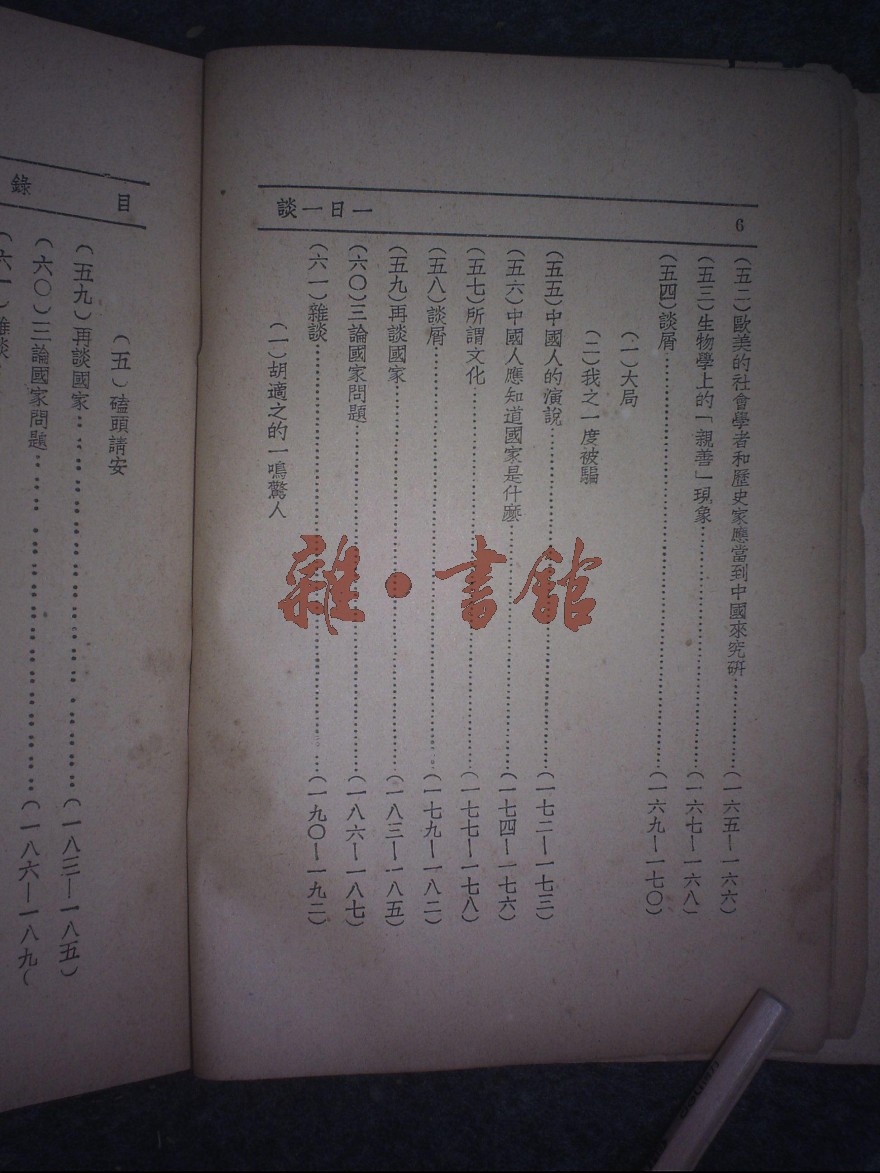 談一日一
6
(五二)歐美的社會學者和歷史家應當到中國來究研……(一六五—一六六)
(五三)生物學上的「親善」現象……(一六七—一六八)
(五四)談屑……(一六九—一七〇)
(一)大局
(二)我之一度被騙
(五五)中國人的演說……(一七二—一七三)
(五六)中國人應知道國家是什麽……(一七四—一七六)
(五七)所謂文化……(一七七—一七八)
(五八)談屑……(一七九—一八二)
(五九)再談國家……(一八三—一八五)
(六〇)三論國家問題……(一八六—一八七)
(六一)雜談……(一九〇—一九二)
(一)胡適之的一鳴驚人
錄 目
(五)磕頭請安
(五九)再談國家……(一八三—一八五)
(六〇)三論國家問題……(一八六—一八九)
(六一)雜談
雜·書館